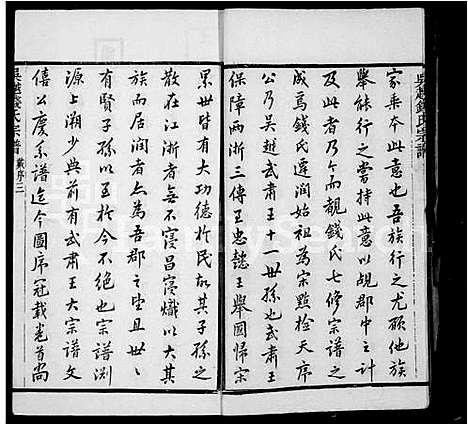 吳越錢氏宗譜
家乘本此意也吾族行之尤願他族
舉能行之嘗持此意以覘郡中之計
及此者乃今而覯錢氏七修宗譜之
成焉錢氏遷潤始祖為宋點檢天序
公乃吳越武肅王十一世孫也武肅王
保障兩浙三傳王忠懿王舉國歸宋
累世皆有大功德於民故其子孫之
散在江浙者無不寖昌寖熾以大其
族而居潤者尤為吾郡之望且世世
有賢子孫以至於今不絕也宗譜溯
源上溯少典前有武肅王大宗譜文
僖公慶系譜迄今圖序冠載卷首尚
吳越錢氏宗譜 戴序 三